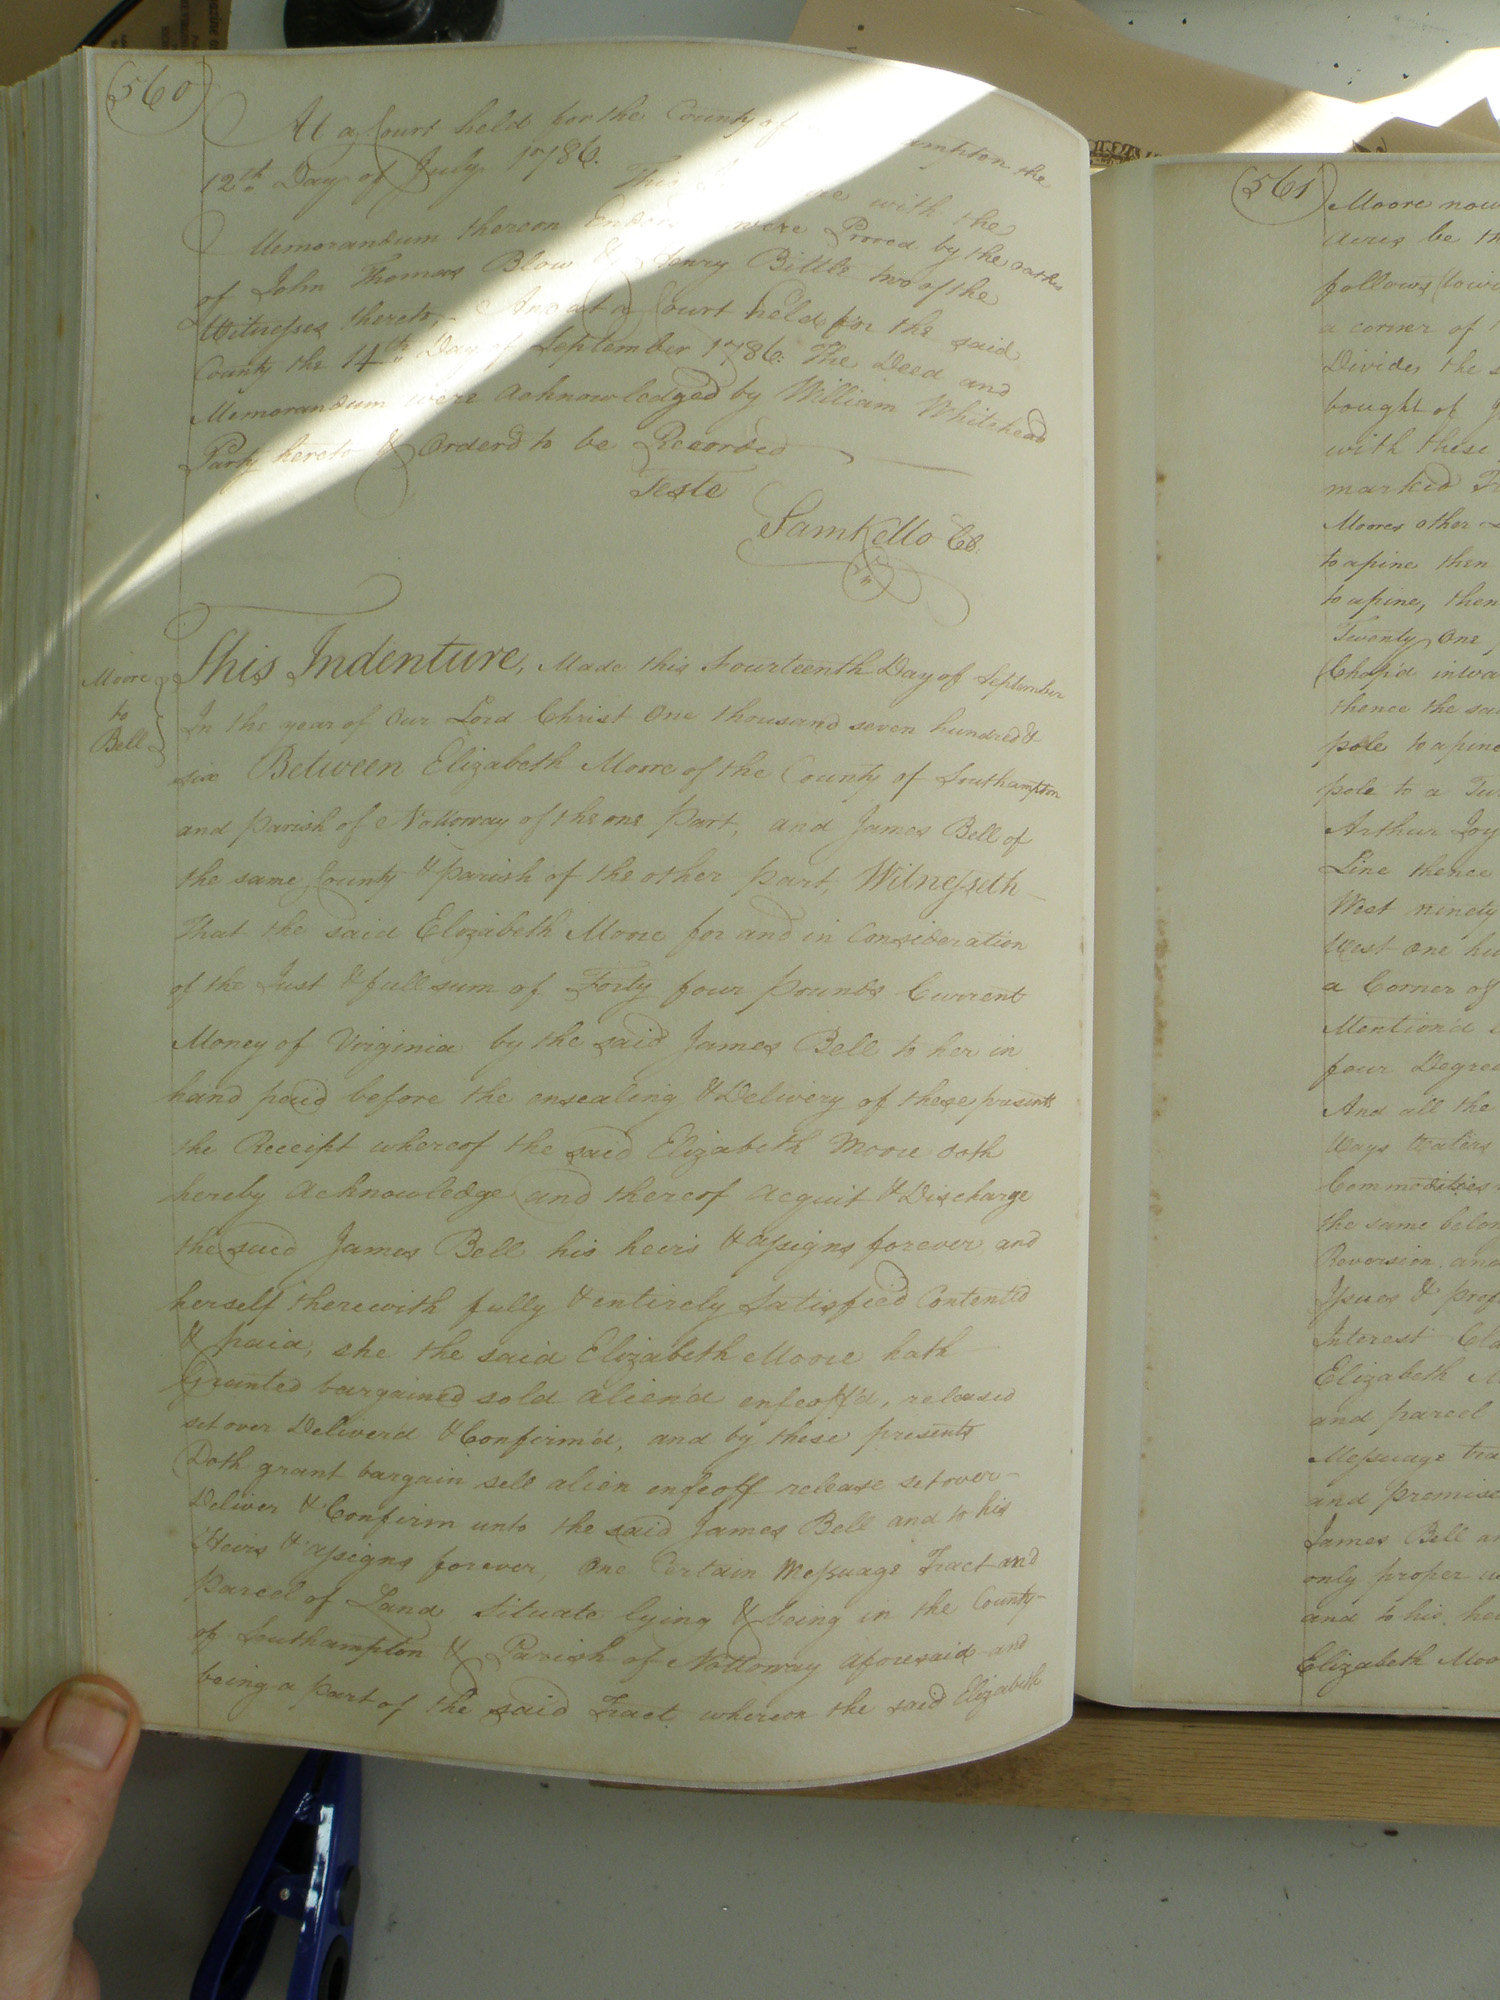 560
At a Court held for the County of ampton the
12th Day of July 1786. This with the
Memorandum thereon were Proved by the oaths
of John Thomas Blow & Henry Bittle two of the
Witnesses thereto, And at a Court held for the said
County the 14th Day of September 1786: The Deed and
Memorandum were acknowledged by William Whitehead
Party hereto & Orderd to be Recorded
Teste
Sam Kello CC.
Moore
to
Bell
This Indenture, Made this Fourteenth Day of September
In the year of Our Lord Christ One thousand seven hundred &
six Between Elizabeth Moore of the County of Southampton
and Parish of Nottoway of the one Part, and James Bell of
the same County & Parish of the other Part, Witnesseth
That the said Elizabeth Moore for and in Consideration
of the Just & full sum of Forty four pounds Current
Money of Virginia by the said James Bell to her in
hand paid before the ensealing & Delivery of these presents
the Receipt whereof the said Elizabeth Moore doth
hereby acknowledge and thereof acquit & Discharge
the said James Bell his heirs & assigns forever and
herself therewith fully & entirely Satisfied Contented
& paid, she the said Elizabeth Moore hath
Granted bargained sold alien'd enfeoff'd, released
set over Deliver'd & Confirm'd, and by these presents
Doth grant bargain sell alien enfeoff release set over
Deliver & Confirm unto the said James Bell and to his
Heirs & assigns forever, One Certain Messuage Tract and
Parcel of Land Situate lying & being in the County
of Southampton & Parish of Nottoway aforesaid and
being a part of the said Tract whereon the said Elizabeth
561
Moore now
acres be
follows
a corner of
Divides the
bought of
with these
marked
Moores other
to a pine then
to a pine, then
Twenty One
Chop'd
thence the
pole to a pine
pole to a
Arthur
Line thence
West ninety
West One
a Corner of
Mention'd
four
And all the
Ways Waters
Commodities
the same
Reversion and
Issues &
Interest
Elizabeth
and parcel
Messuage
and
James Bell
only proper
and to his
Elizabeth